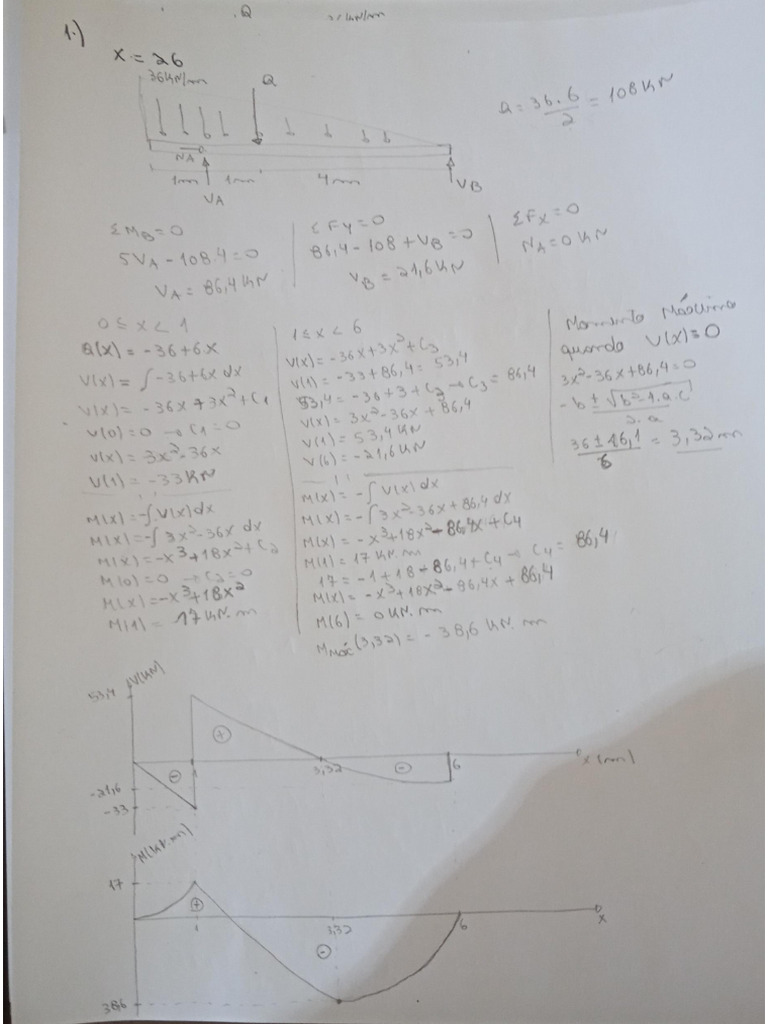 Q
1.)
X = 26
36KN/m
Q
Q = 36.6/2 = 108 KN
NA
1m
1m
4m
VA
VB
ΣMB=0
5VA - 108.4=0
VA = 86,4 KN
ΣFY=0
86,4 - 108 + VB = 0
VB = 21,6 KN
ΣFX=0
NA=0 KN
0 ≤ x < 1
Q(x) = -36+6x
V(x) = ∫-36+6x dx
V(x) = -36x + 3x² + C1
V(0)=0 → C1=0
V(x) = 3x²-36x
V(1) = -33KN
M(x) = -∫V(x)dx
M(x) = -∫3x²-36x dx
M(x) = -x³+18x²+C2
M(0)=0 → C2=0
M(x) = -x³+18x²
M(1) = 17KN.m
1 ≤ x < 6
V(x) = -36x+3x²+C3
V(1) = -33+86,4 = 53,4
53,4 = -36+3+C3 → C3 = 86,4
V(x) = 3x²-36x+86,4
V(1) = 53,4 KN
V(6) = -21,6KN
M(x) = -∫V(x) dx
M(x) = -∫3x²-36x+86,4 dx
M(x) = -x³+18x²-86,4x+C4
M(1) = 17 KN.m
17 = -1+18-86,4+C4 → C4 = 86,4
M(x) = -x³+18x²-86,4x+86,4
M(6) = 0KN.m
MMáx(3,32) = -38,6 KN.m
Momento Máximo
quando V(x)=0
3x²-36x+86,4=0
-b ± √b²-4.a.c / 2.a
36±16,1/6 = 3,32m
V(KN)
53,4
-21,6
-33
+
-
-
1
3,32
6
x (m)
M(KN.m)
17
38,6
+
-
1
3,32
6
x